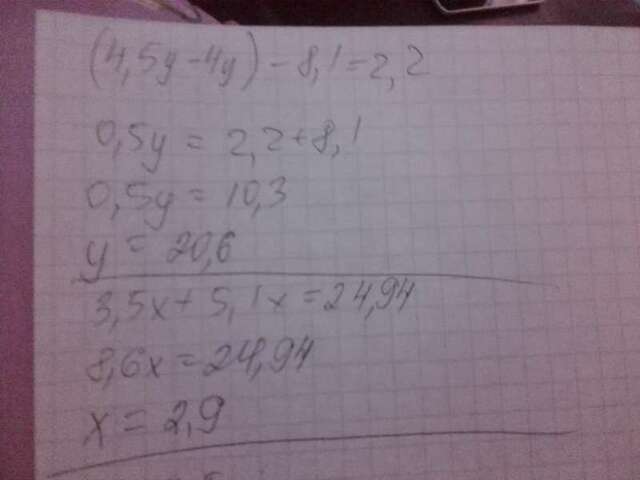 (4,5y-4y)-8,1=2,2
0,5y=2,2+8,1
0,5y=10,3
y=20,6
3,5x+5,1x=24,94
8,6x=24,94
x=2,9